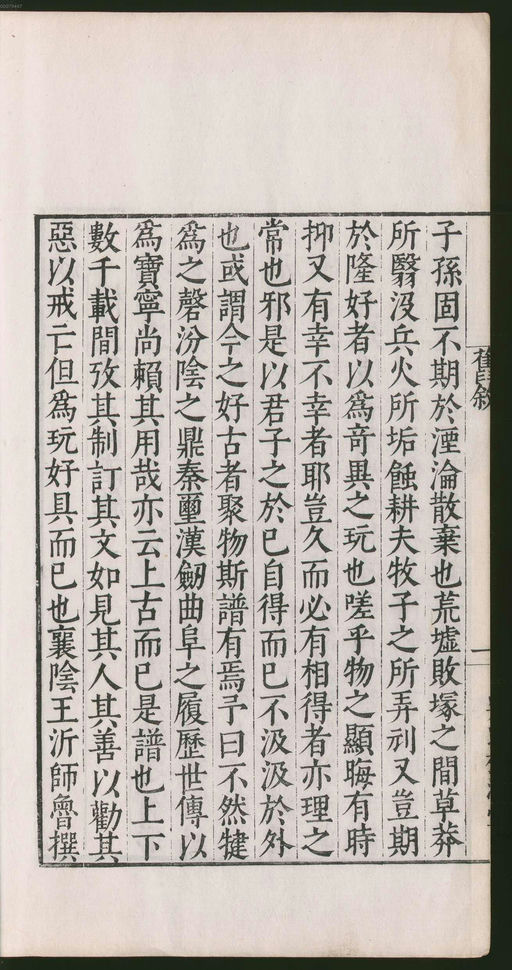 舊敘
子孫固不期於湮淪散棄也荒墟敗塚之間草莽
所翳沒兵火所垢蝕耕夫牧子之所弄刓又豈期
於隆好者以為竒異之玩也嗟乎物之顯晦有時
抑又有幸不幸者耶豈久而必有相得者亦理之
常也邪是以君子之於已自得而已不汲汲於外
也或謂今之好古者聚物斯譜有焉予曰不然犍
為之磬汾陰之鼎秦璽漢劒曲阜之履歷世傳以
為寶寧尚賴其用哉亦云上古而已是譜也上下
數千載間攷其制訂其文如見其人其善以勸其
惡以戒亡但為玩好具而已也襄陰王沂師魯撰